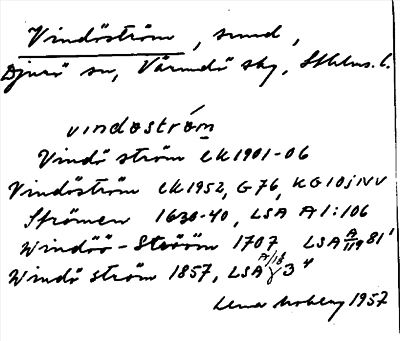 Vindöström, sund,
Djurö sn, Värmdö skg, Sthlms. l.
vindoström
Vindö ström EK 1901-06
Vindöström EK 1952, G 76, KG 10j NV
Strömen 1630-40, LSA A 1:106
Windöö-Strööm 1707 LSA A 119 81'
Windö ström 1857, LSA 3 4
1957